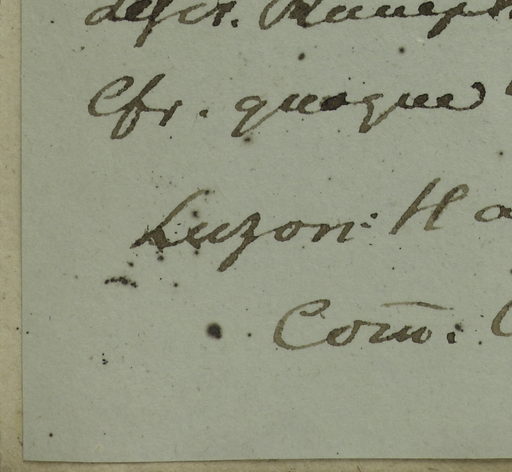 descr. Rumph
Cfr. quoque
Luzon: H a
Com̄. C